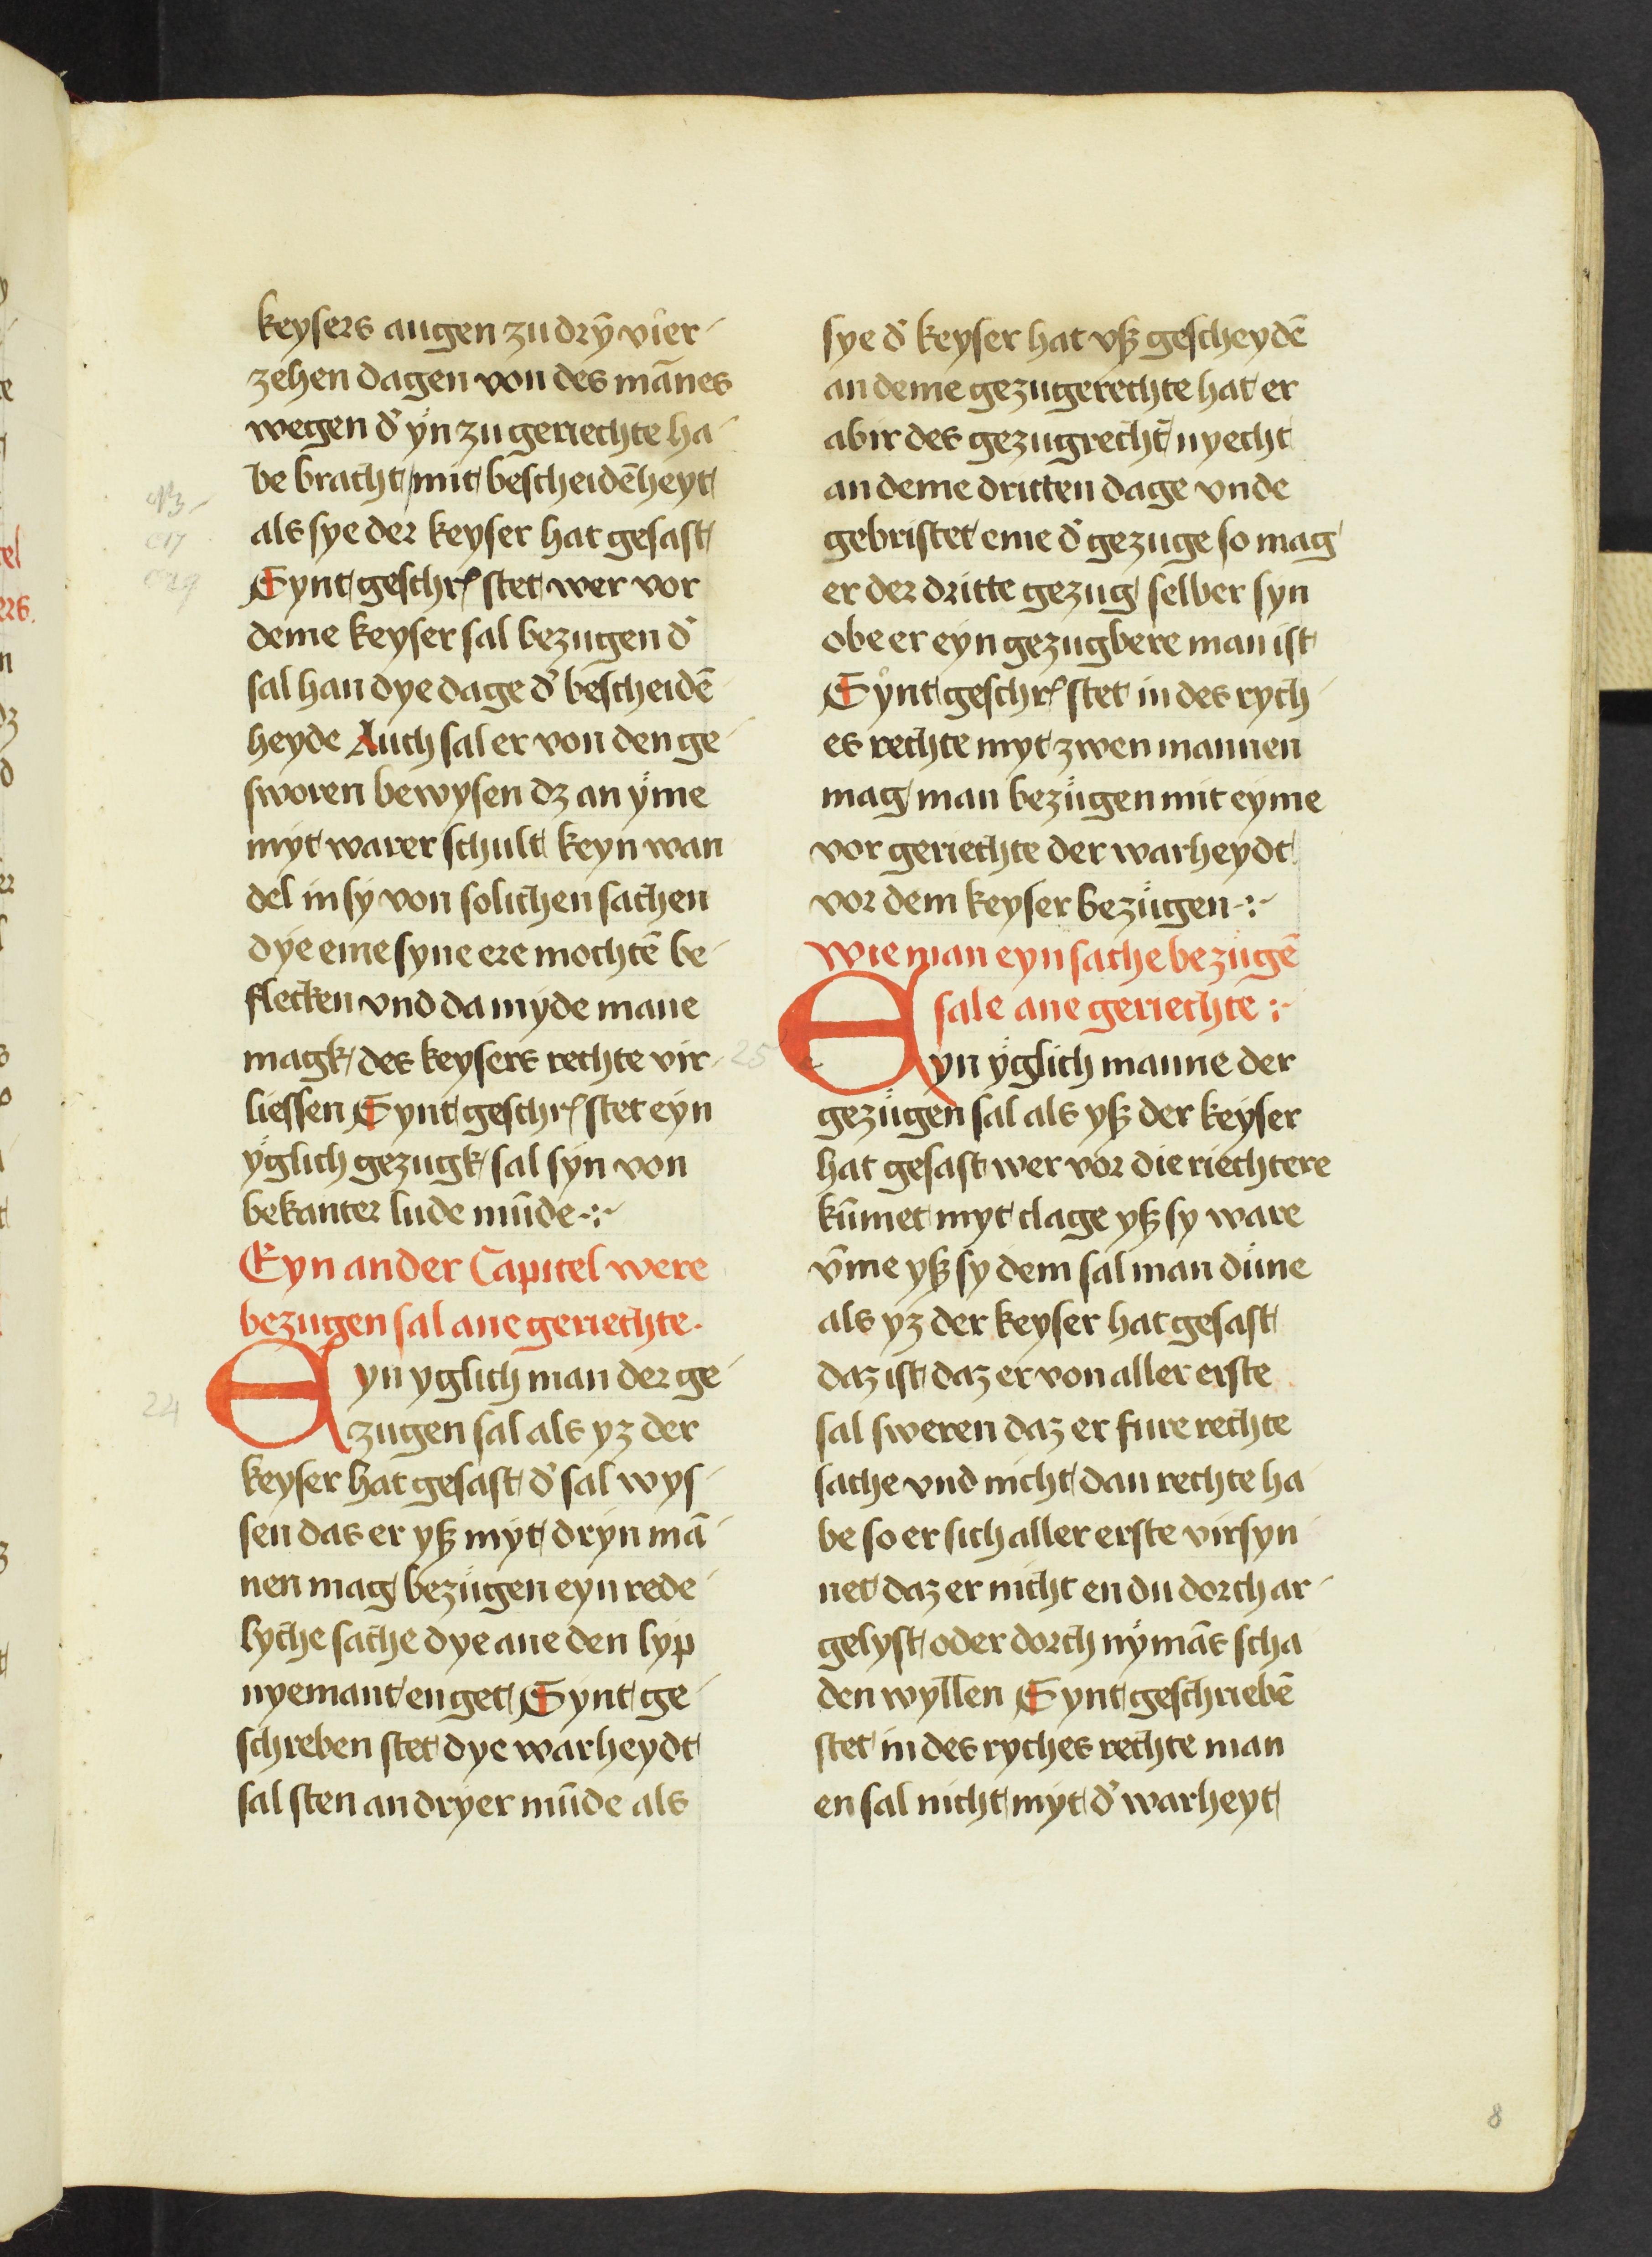 keysers augen zu drȳ vier-
zehen dagen von des mānes
wegen d᾽ ÿn zu geriechte ha-
be bracht mit bescheidēheyt
als sye der keyser hat gesast
Eynt geschr᾽ stet wer vor
deme keyser sal bezugen d᾽
sal han dye dage d᾽ bescheidē-
heyde Auch sal er von den ge-
sworen bewysen dz an ÿme
myt warer schult keyn wan
del in sy von solichen sachen
dye eme syne ere mochtē be-
flecken vnd da myde mane
magk des keysers rechte vir-
liessen Eynt geschr᾽ stet eyn
ÿglich gezugk sal syn von
bekanter lude mūde
Eyn ander Capitel were
bezugen sal ane geriechte.
24
Eyn yglich man der ge-
zugen sal als yz der
keyser hat gesast d᾽ sal wys-
sen das er yß myt dryn mā-
nen mag bezügen eyn rede-
lyche sache dye ane den lyp
nyemant en get Eynt ge-
schreben stet dye warheydt
sal sten an dryer mūde als
sye d᾽ keyser hat vß gescheydē
an deme gezugerechte hat er
abir des gezugrecht nyecht
an deme dritten dage vnde
gebristet eme d᾽ gezuge so mag
er der dritte gezug selber syn
obe er eyn gezugbere man ist
Eynt geschr᾽ stet in des rych-
es rechte myt zwen mannen
mag man bezügen mit eyme
vor geriechte der warheydt
vor dem keyser bezügen
wie man eyn sache bezügē
sale ane geriechte
25
Eyn ÿglich manne der
gezügen sal als yß der keyser
hat gesast wer vor die riechtere
kūmet myt clage yß sy ware
v̄me yß sy dem sal man düne
als yz der keyser hat gesast
daz ist daz er von aller erste
sal sweren daz er fure rechte
sache vnd nicht dan rechte ha
be so er sich aller erste virsyn
net daz er nicht en du dorch ar-
gelyst oder dorch nÿmās scha
den wyllen Eynt geschriebē
stet in des ryches rechte man
en sal nicht myt d᾽ warheyt
8